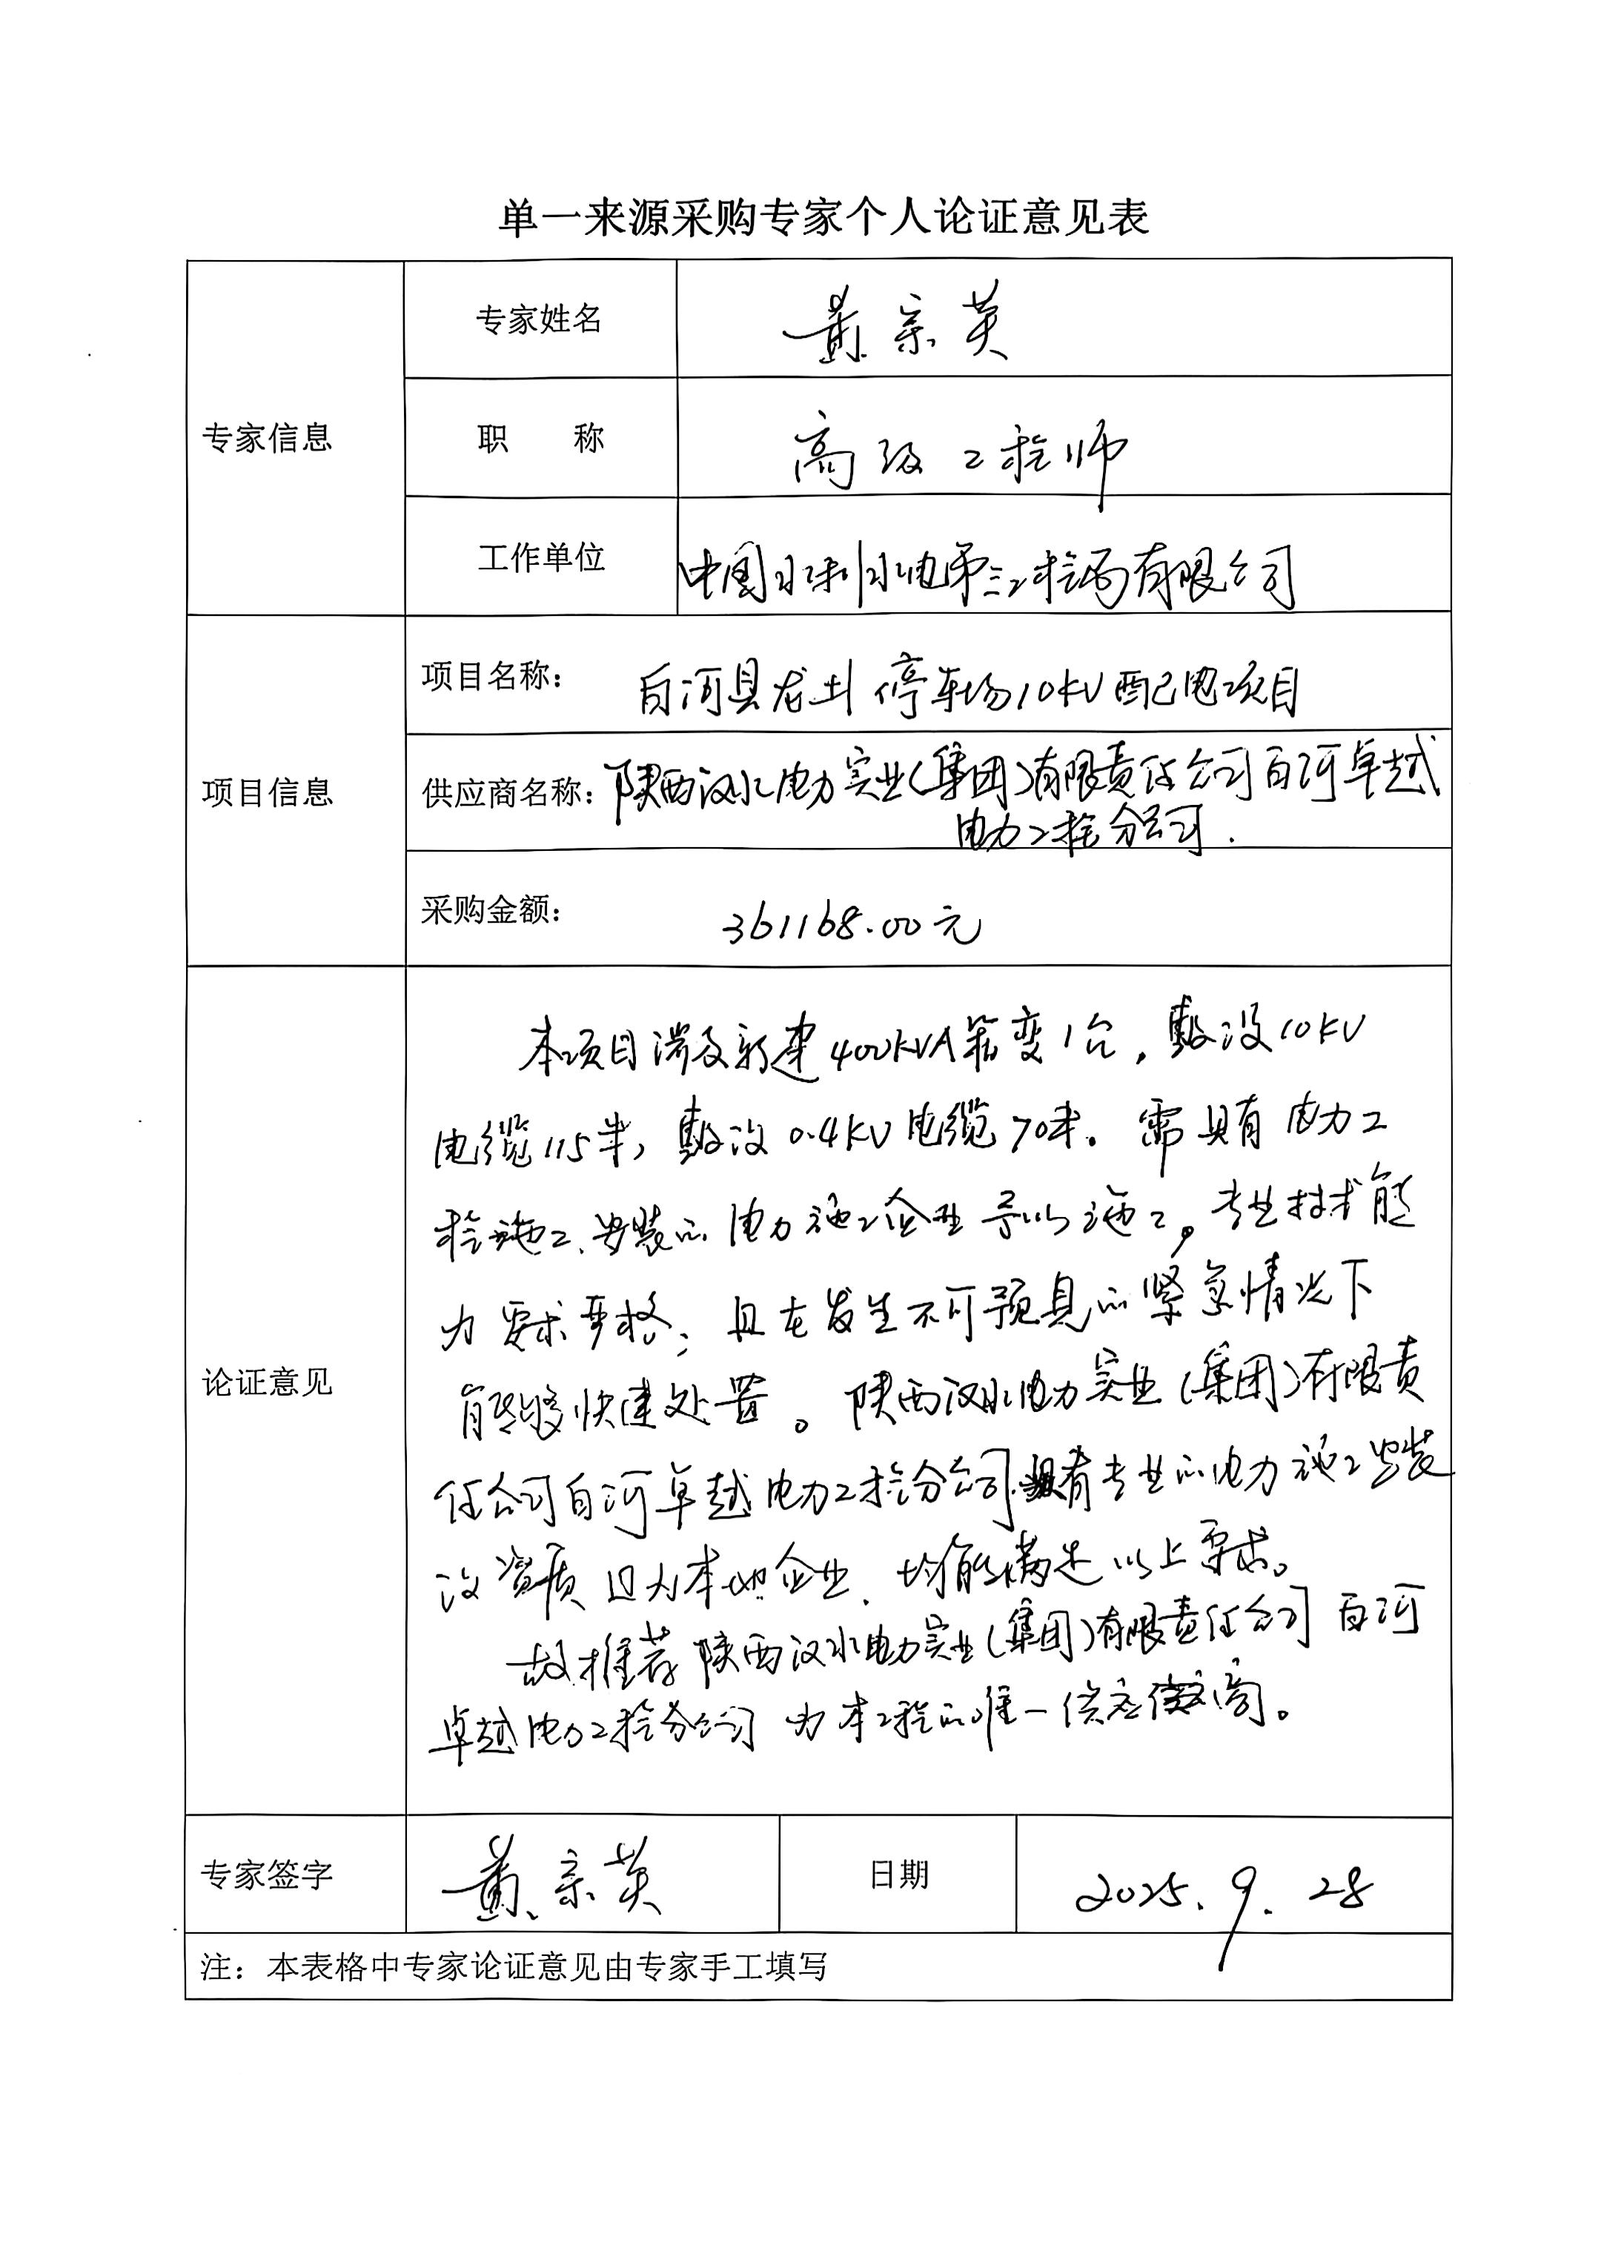 单一来源采购专家个人论证意见表
专家信息
专家姓名
黄宗英
职 称
高级工程师
工作单位
中国水利水电第三工程局有限公司
项目信息
项目名称：
白河县龙 停车场10KV配电项目
供应商名称：
陕西汉水电力实业(集团)有限责任公司白河卓越
电力工程分公司.
采购金额：
361168.00元
论证意见
本项目涉及新建400KVA箱变1台，敷设10KV
电缆115米，敷设0.4KV电缆70米。需具有电力工
程施工、安装的电力施工企业予以施工。专业技术能
力要求严格；且在发生不可预见的紧急情况下
能够快速处置。陕西汉水电力实业(集团)有限责
任公司白河卓越电力工程分公司具有专业的电力施工安装
资质且为本地企业，均能满足以上要求。
故推荐陕西汉水电力实业(集团)有限责任公司白河
卓越电力工程分公司为本工程的唯一供应商。
专家签字
黄宗英
日期
2025.9.28
注：本表格中专家论证意见由专家手工填写